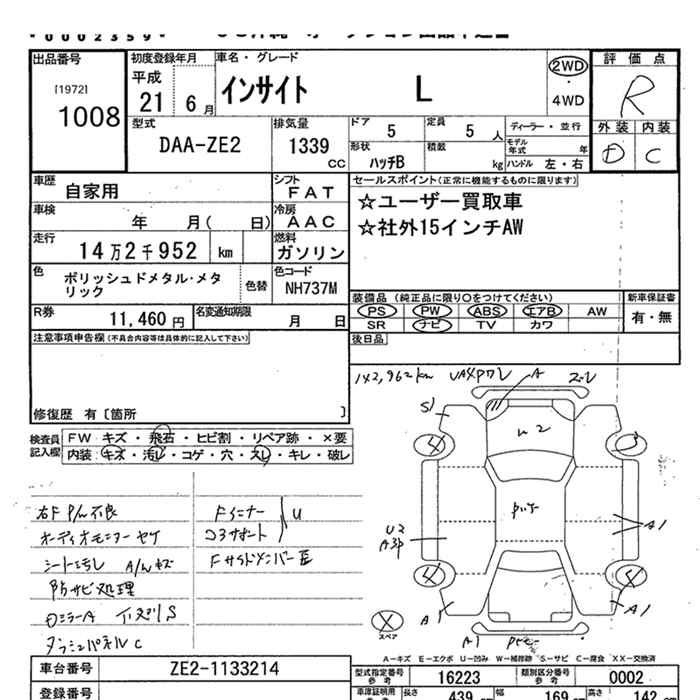 *0002359*
出品番号
[1972]
1008
初度登録年月
平成
21 6月
車名・グレード
インサイト L
2WD
・
4WD
評価点
R
外装 内装
D C
型式
DAA-ZE2
排気量
1339
cc
ドア 5
定員 5 人
形状 ハッチB
積載 kg
ディーラー・並行
モデル年式 年
ハンドル 左・右
車歴 自家用
シフト FAT
車検 年 月( 日)
冷房 AAC
走行 14万2千952 km
燃料 ガソリン
色 ポリッシュドメタル・メタリック
色替
色コード NH737M
R券 11,460円
名変通知期限 月 日
セールスポイント(正常に機能するものに限ります)
☆ユーザー買取車
☆社外15インチAW
装備品 (純正品に限り○をつけてください)
PS PW ABS エアB AW
SR ナビ TV カワ
新車保証書
有・無
後日品
注意事項申告欄(不具合内容等は具体的に記入して下さい)
修復歴 有〔箇所 〕
検査員記入欄
FW キズ・飛石・ヒビ割・リペア跡・×要
内装:キズ・汚レ・コゲ・穴・スレ・キレ・破レ
142,962km
A
S1
4
3
W2
U2
A3P
A1
4
5
A1
A1
A1
右F P/W不良
オーディオモニターヤケ
シート汚し A/Wキズ
防サビ処理
ロミラーA
ダッシュパネルC
Fミラー
コアサポート
U
Fサイドメンバー
X
スペア
A-キズ E-エクボ U-凹み W-補修跡 S-サビ C-腐食 XX-交換済
車台番号 ZE2-1133214
登録番号
型式指定番号 参考 16223
類別区分番号 参考 0002
車庫証明用
長さ 439
幅 169
高さ 142